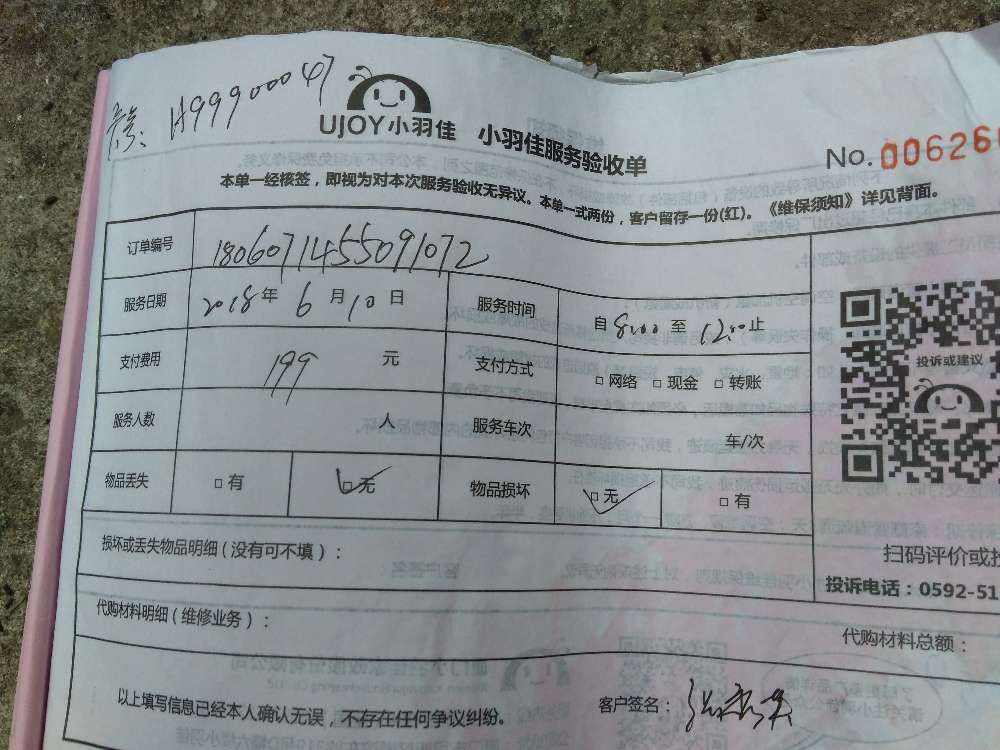 H99900047
UJOY小羽佳 小羽佳服务验收单
No. 006266
本单一经核签，即视为对本次服务验收无异议。本单一式两份，客户留存一份(红)。《维保须知》详见背面。
订单编号 1806071455091072
服务日期 2018年 6月10日 服务时间 自8:00至12:00止
支付费用 199 元 支付方式 □网络 □现金 □转账
投诉或建议
服务人数 人 服务车次 车/次
物品丢失 □有 □无 物品损坏 □无 □有
损坏或丢失物品明细（没有可不填）：
扫码评价或投
投诉电话：0592-51
代购材料明细（维修业务）：
代购材料总额：
以上填写信息已经本人确认无误，不存在任何争议纠纷。 客户签名：